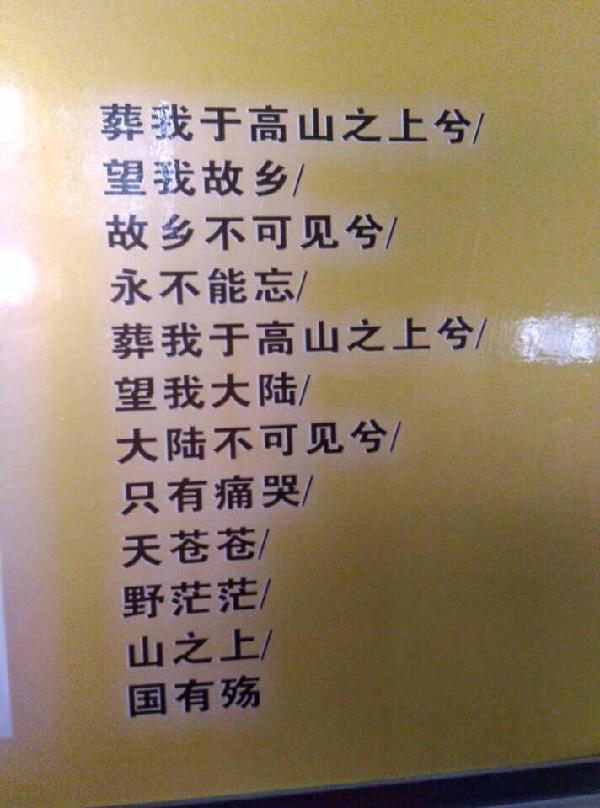 葬我于高山之上兮/
望我故乡/
故乡不可见兮/
永不能忘/
葬我于高山之上兮/
望我大陆/
大陆不可见兮/
只有痛哭/
天苍苍/
野茫茫/
山之上/
国有殇